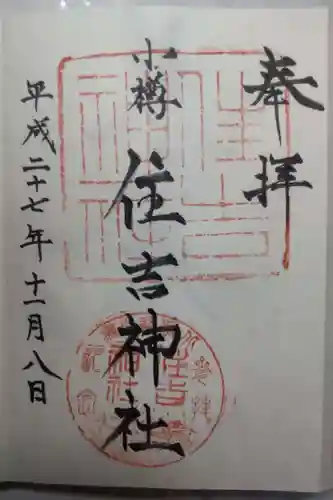 奉拝
小樽 住吉神社
平成二十七年十一月八日
住吉神社